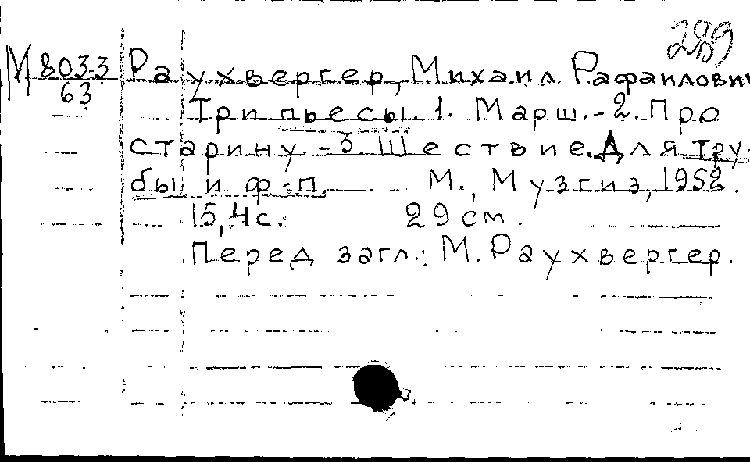 289
М 803-3 Раухвергер, Михаил Рафаилович
63
Три пьесы. 1. Марш.-2. Про
старину.-3. Шествие. Для тру-
бы и ф-п. М., Музгиз, 1952.
15,4с. 29см.
Перед загл.: М. Раухвергер.